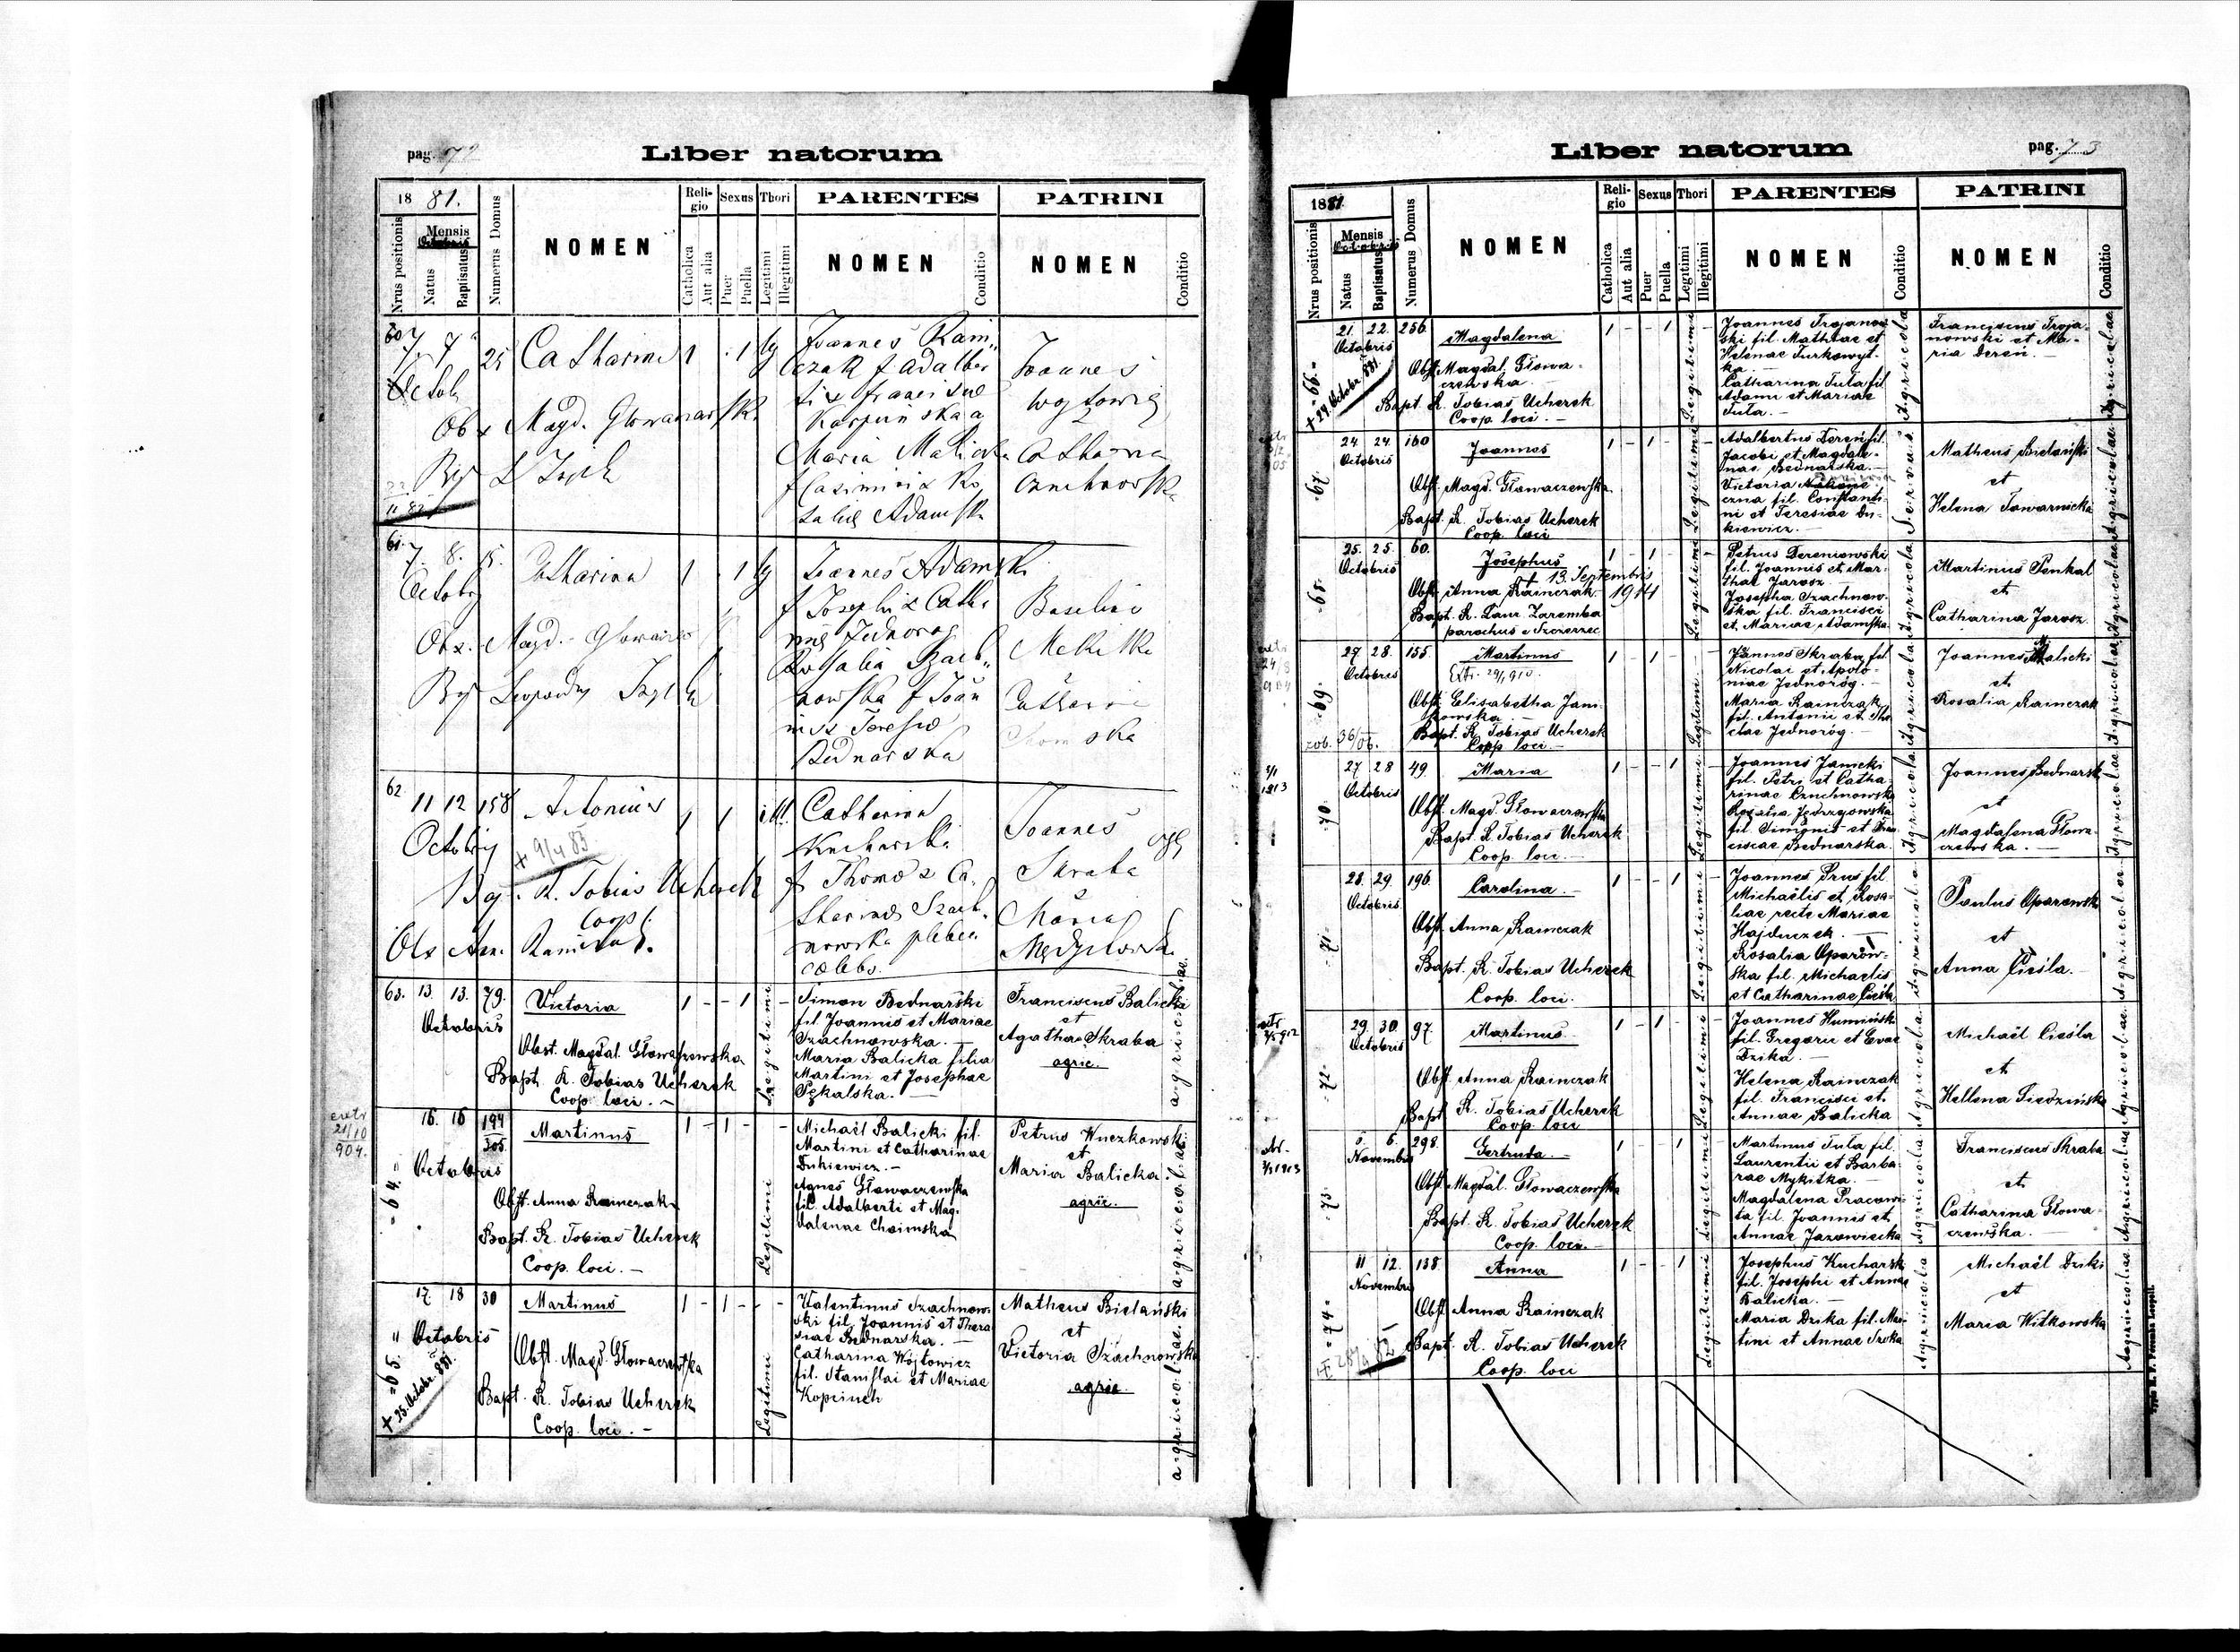 pag. 72
Liber natorum
1881.
Nrus positionis
Mensis
Octobris
Natus
Baptisatus
Numerus Domus
NOMEN
Religio
Catholica
Aut alia
Sexus
Puer
Puella
Thori
Legitimi
Illegitimi
PARENTES
NOMEN
Conditio
PATRINI
NOMEN
Conditio
60 7 7 25 Catharina 1 1 lg
Octob
Obs Magd.
Bap L
Joannes Rain
czak f Adalber
Maria
Joannes
Catharina
61. 7. 8. 15. Catharina 1 1 lg
Octobr
Obs. Magd.
Joannes Adamski
f Josephi & Catha
Rosalia Szach
nowska f Joan
nis & Teresiae
Bednarska
62 11 12 158 Antonius 1 1 ill.
Octobris
+ 9/4 83
Bap. R. Tobias Ucherek
Coop.
Catharina
Kucharska
f Thoma & Ca
tharinae Szach
nowska
Joannes
Skraba
63. 13. 13. 79. Victoria 1 - - 1
Octobris
Obst. Magdal. Głowaczewska
Bapt. R. Tobias Ucherek
Coop. loci. -
Legitimi
Simon Bednarski
fil. Joannis et Mariae
Szachnowska. -
Maria Balicka filia
Martini et Josephae
Pękalska. -
Franciscus Balicki
et
Agatha Skraba
agric.
agricolae.
extr
21/10
904.
= 64. =
16. 16 194
205.
Martinus 1 - 1 -
Octobris
Obst. Anna Rainczak
Bapt. R. Tobias Ucherek
Coop. loci. -
Legitimi
Michaël Balicki fil.
Martini et Catharinae
Dukiewicz. -
Agnes Głowaczewska
fil. Adalberti et Mag-
dalenae Choimska
Petrus Kuczkowski
et
Maria Balicka.
agric.
agricolae
= 65. =
17 18 30 Martinus 1 - 1 - - -
Octobris
+ 25. Octobr. 881.
Obst. Magd. Głowaczewska
Bapt. R. Tobias Ucherek
Coop. loci. -
Legitimi
Valentinus Szachnow-
ski fil. Joannis et There-
siae Bednarska. -
Catharina Wójtowicz
fil. Stanislai et Mariae
Kopciuch
Matheus Bielański
et
Victoria Szachnowska
agric.
agricolae.
Liber natorum
pag. 73
1881.
Nrus positionis
Mensis
Octobris
Natus
Baptisatus
Numerus Domus
NOMEN
Religio
Catholica
Aut alia
Sexus
Puer
Puella
Thori
Legitimi
Illegitimi
PARENTES
NOMEN
Conditio
PATRINI
NOMEN
Conditio
= 66. =
21. 22. 256. Magdalena 1 - - 1
Octobris
+ 29. Octobr. 881.
Obst. Magdal. Głowa-
czewska. -
Bapt. R. Tobias Ucherek
Coop. loci. -
Legitimi
Joannes Trojanow-
ski fil. Mathiae et
Helenae Turkowyt-
ka. -
Catharina Tuła fil.
Adami et Mariae
Tuła. -
Agricola
Franciscus Troja-
nowski et Ma-
ria Dereń. -
Agricolae
-67-
24 24. 160 Joannes 1 - 1 -
Octobris
Obst. Magd. Głowaczewska
Bapt. R. Tobias Ucherek
Coop. loci
Legitimi
Adalbertus Dereń fil.
Jacobi et Magdale-
nae Bednarska. -
Victoria
czna fil. Constanti-
ni et Teresiae Du-
kiewicz. -
Servus
Matheus Bielański
et
Helena Tawarnicka
Agricolae
-68-
25. 25. 60. Josephus 1 - 1 -
Octobris
+ 13. Septembris
1941
Obst. Anna Rainczak.
Bapt. R. Laur. Zaremba
parochus e Szczerzec
Legitimi
Petrus Dereniowski
fil. Joannis et Mar-
thae Jarosz
Josepha Szachnow-
ska fil. Francisci
et Mariae Adamska
Agricola
Martinus Penkal
et
Catharina Jarosz
Agricolae
-69-
27. 28. 155. Martinus 1 - 1 -
Octobris
Extr. 29/1 910.
Obst. Elisabetha Jan-
kowska -
Bapt. R. Tobias Ucherek
Coop. loci. -
zob. 36/06.
Legitimi
Joannes Skraba fil.
Nicolai et Apolo-
niae Jednoróg. -
Maria Rainczak
fil. Antonii et The-
clae Jednoróg. -
Agricola
Joannes Malicki
et
Rosalia Rainczak
Agricolae
1913
-70-
27 28 49. Maria 1 - - 1
Octobris
Obst. Magd. Głowaczewska
Bapt. R. Tobias Ucherek
Coop. loci. -
Legitimi
Joannes Janicki
fil. Petri et Catha-
rinae Czuchnowska
Rozalia Jędrzejowska
fil. Simonis et Fran-
ciscae Bednarska.
Agricola
Joannes Bednarski
et
Magdalena Głowa-
czewska. -
Agricolae
-71-
28. 29. 196. Carolina. - 1 - - 1
Octobris
Obst. Anna Rainczak
Bapt. R. Tobias Ucherek
Coop. loci.
Legitimi
Joannes Prus fil.
Michaëlis et Rosa-
liae recte Mariae
Hajduczek. -
Rosalia Oparow-
ska fil. Michaelis
et Catharinae Cieśla
Agricola
Paulus Oparowski
et
Anna Cieśla.
Agricolae
-72-
29. 30. 97. Martinus 1 - 1 -
Octobris
Obst. Anna Rainczak
Bapt. R. Tobias Ucherek
Coop. loci
Legitimi
Joannes Humiński
fil. Gregorii et Evae
Dzika. -
Helena Rainczak
fil. Francisci et
Annae Balicka
Agricola
Michaël Cieśla
et
Hellena Siedzińska
Agricolae
-73-
5. 6. 298. Gertruda. - 1 - - 1
Novembris
Obst. Magdal. Głowaczewska
Bapt. R. Tobias Ucherek
Coop. loci. -
Legitimi
Martinus Tuła fil.
Laurentii et Barba-
rae Mykitka. -
Magdalena Pracowi-
ta fil. Joannis et
Annae Jazowiecka
Agricola
Franciscus Skraba
et
Catharina Głowa-
czewska. -
Agricolae
-74-
11 12. 138. Anna 1 - - 1
Novembris
Obst. Anna Rainczak
Bapt. R. Tobias Ucherek
Coop. loci
Legitimi
Josephus Kucharski
fil. Josephi et Annae
Balicka. -
Maria Dzika fil. Mar-
tini et Annae Sroka
Agricola
Michaël Dziki
et
Maria Witkowska
Agricolae